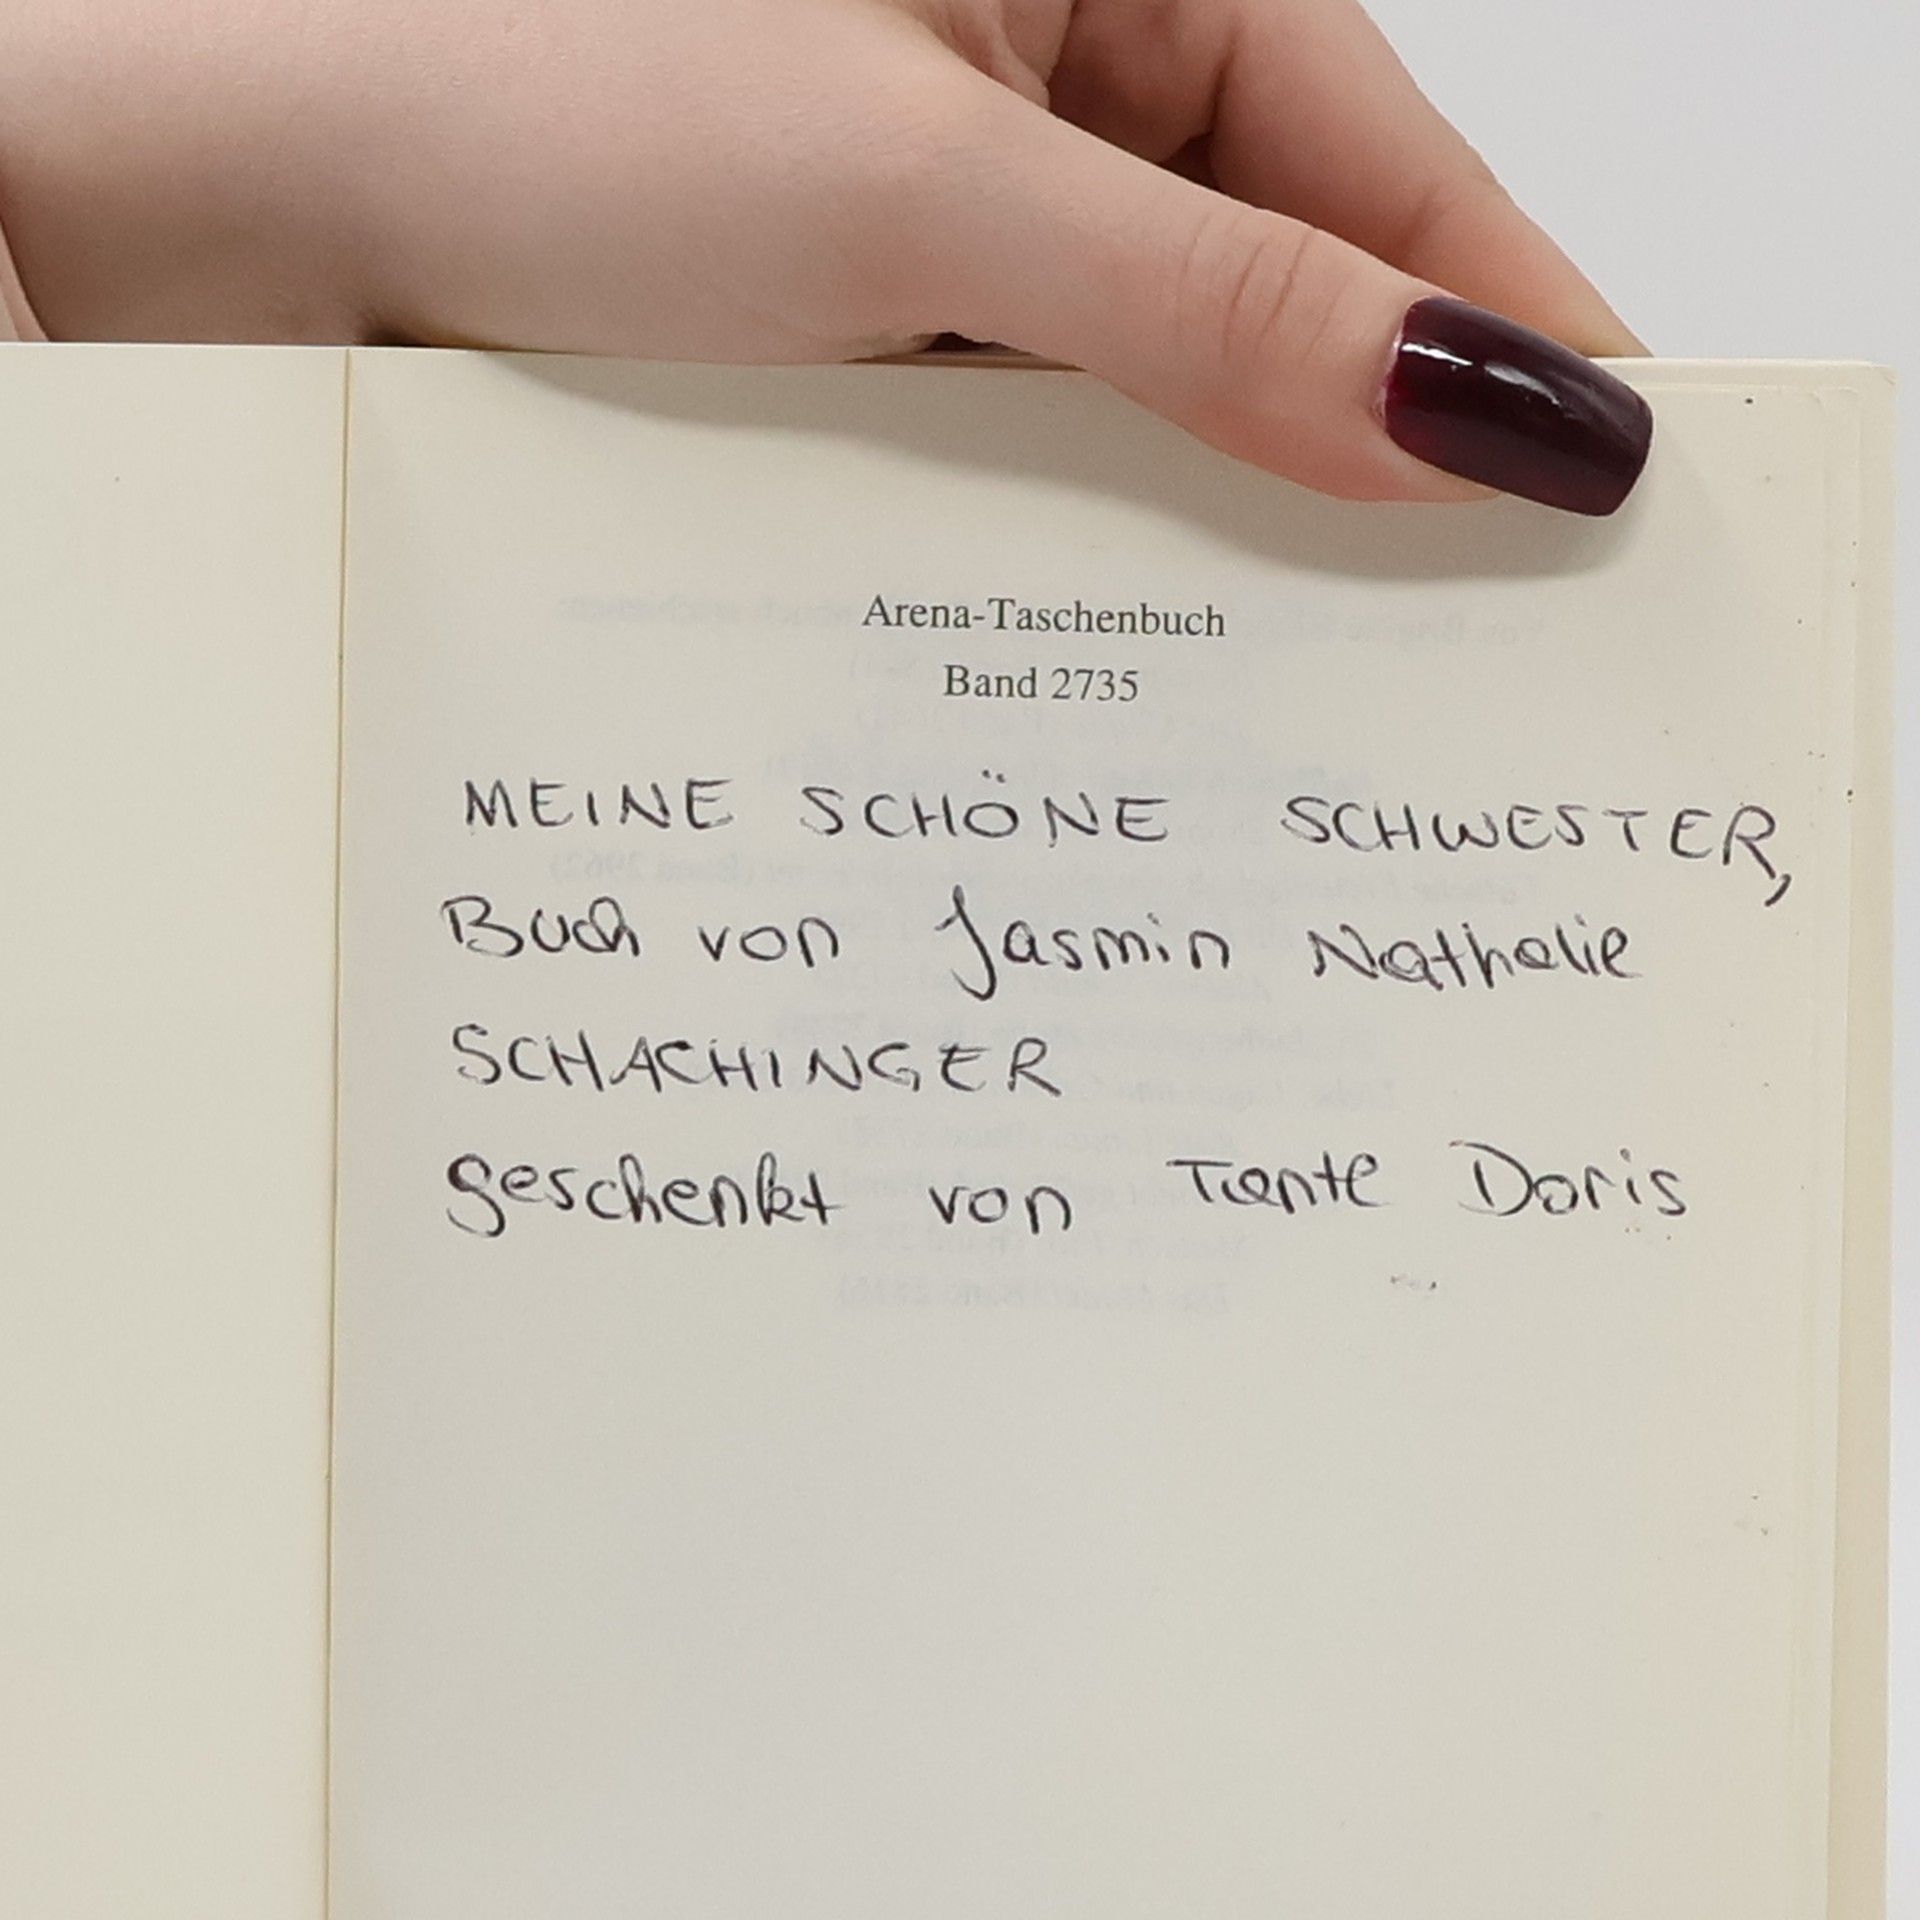 Arena-Taschenbuch
Band 2735
MEINE SCHÖNE SCHWESTER,
Buch von Jasmin Nathalie
SCHACHINGER
geschenkt von Tante Doris